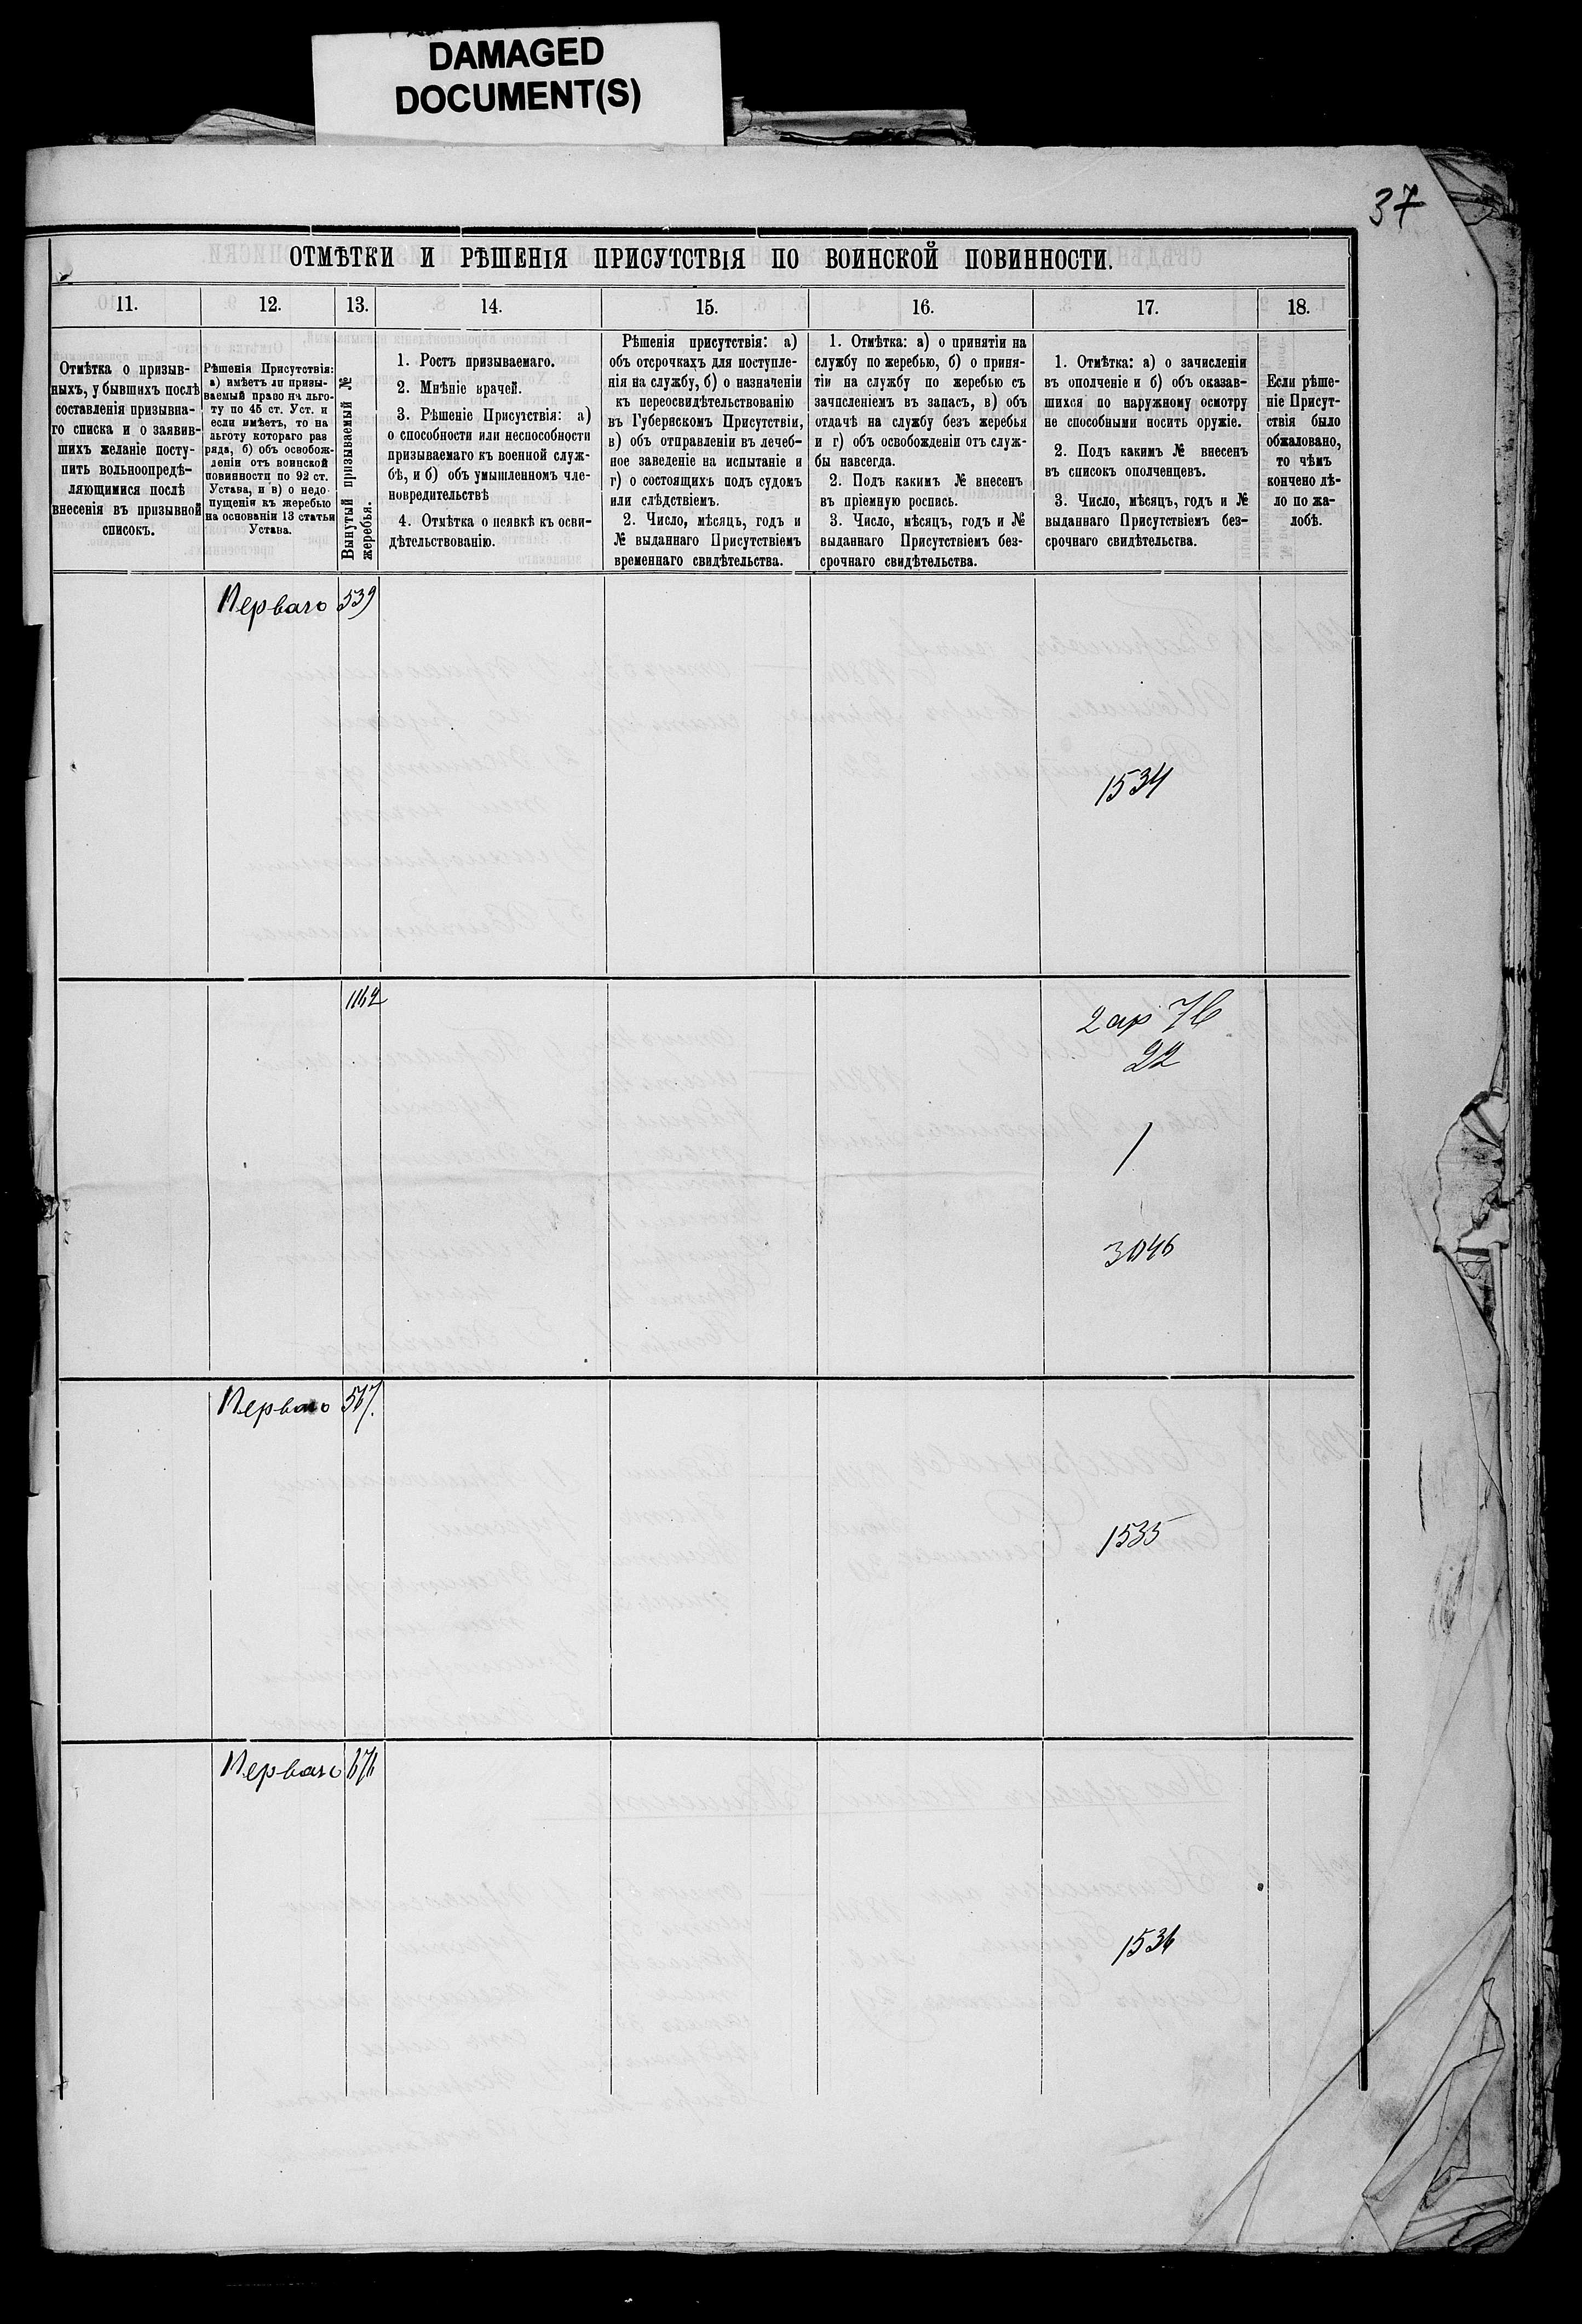 DAMAGED
DOCUMENT(S)
37
ОТМѢТКИ И РѢШЕНІЯ ПРИСУТСТВІЯ ПО ВОИНСКОЙ ПОВИННОСТИ.
11.
12.
13.
14.
15.
16.
17.
18.
Отмѣтка о призыв-
ныхъ, у бывшихъ послѣ
составленія призывна-
го списка и о заявив-
шихъ желаніе посту-
пить вольноопредѣ-
ляющимися послѣ
внесенія въ призывной
списокъ.
Рѣшенія Присутствія:
а) имѣетъ ли призы-
ваемый право на льго-
ту по 45 ст. Уст. и
если имѣетъ, то на
льготу котораго раз
ряда, б) объ освобож-
деніи отъ воинской
повинности по 92 ст.
Устава, и в) о недо-
пущеніи къ жеребью
на основаніи 13 статьи
Устава.
Вынутый призываемый №
жеребья.
1. Ростъ призываемаго.
2. Мнѣніе врачей.
3. Рѣшеніе Присутствія: а)
о способности или неспособности
призываемаго къ военной служ-
бѣ, и б) объ умышленномъ чле-
новредительствѣ
4. Отмѣтка о неявкѣ къ осви-
дѣтельствованію.
Рѣшенія присутствія: а)
объ отсрочкахъ для поступле-
нія на службу, б) о назначеніи
къ переосвидѣтельствованію
въ Губернскомъ Присутствіи,
в) объ отправленіи въ лечеб-
ное заведеніе на испытаніе и
г) о состоящихъ подъ судомъ
или слѣдствіемъ.
2. Число, мѣсяцъ, годъ и
№ выданнаго Присутствіемъ
временнаго свидѣтельства.
1. Отмѣтка: а) о принятіи на
службу по жеребью, б) о приня-
тіи на службу по жеребью съ
зачисленіемъ въ запасъ, в) объ
отдачѣ на службу безъ жеребья
и г) объ освобожденіи отъ служ-
бы навсегда.
2. Подъ какимъ № внесенъ
въ пріемную роспись.
3. Число, мѣсяцъ, годъ и №
выданнаго Присутствіемъ без-
срочнаго свидѣтельства.
1. Отмѣтка: а) о зачисленіи
въ ополченіе и б) объ оказав-
шихся по наружному осмотру
не способными носить оружіе.
2. Подъ какимъ № внесенъ
въ списокъ ополченцевъ.
3. Число, мѣсяцъ, годъ и №
выданнаго Присутствіемъ без-
срочнаго свидѣтельства.
Если рѣше-
ніе Присут-
ствія было
обжаловано,
то чѣмъ
кончено дѣ-
ло по жа-
лобѣ.
Перваго 539
1534
1162
22
1
3046
Перваго 567.
1535
Перваго 676
1536